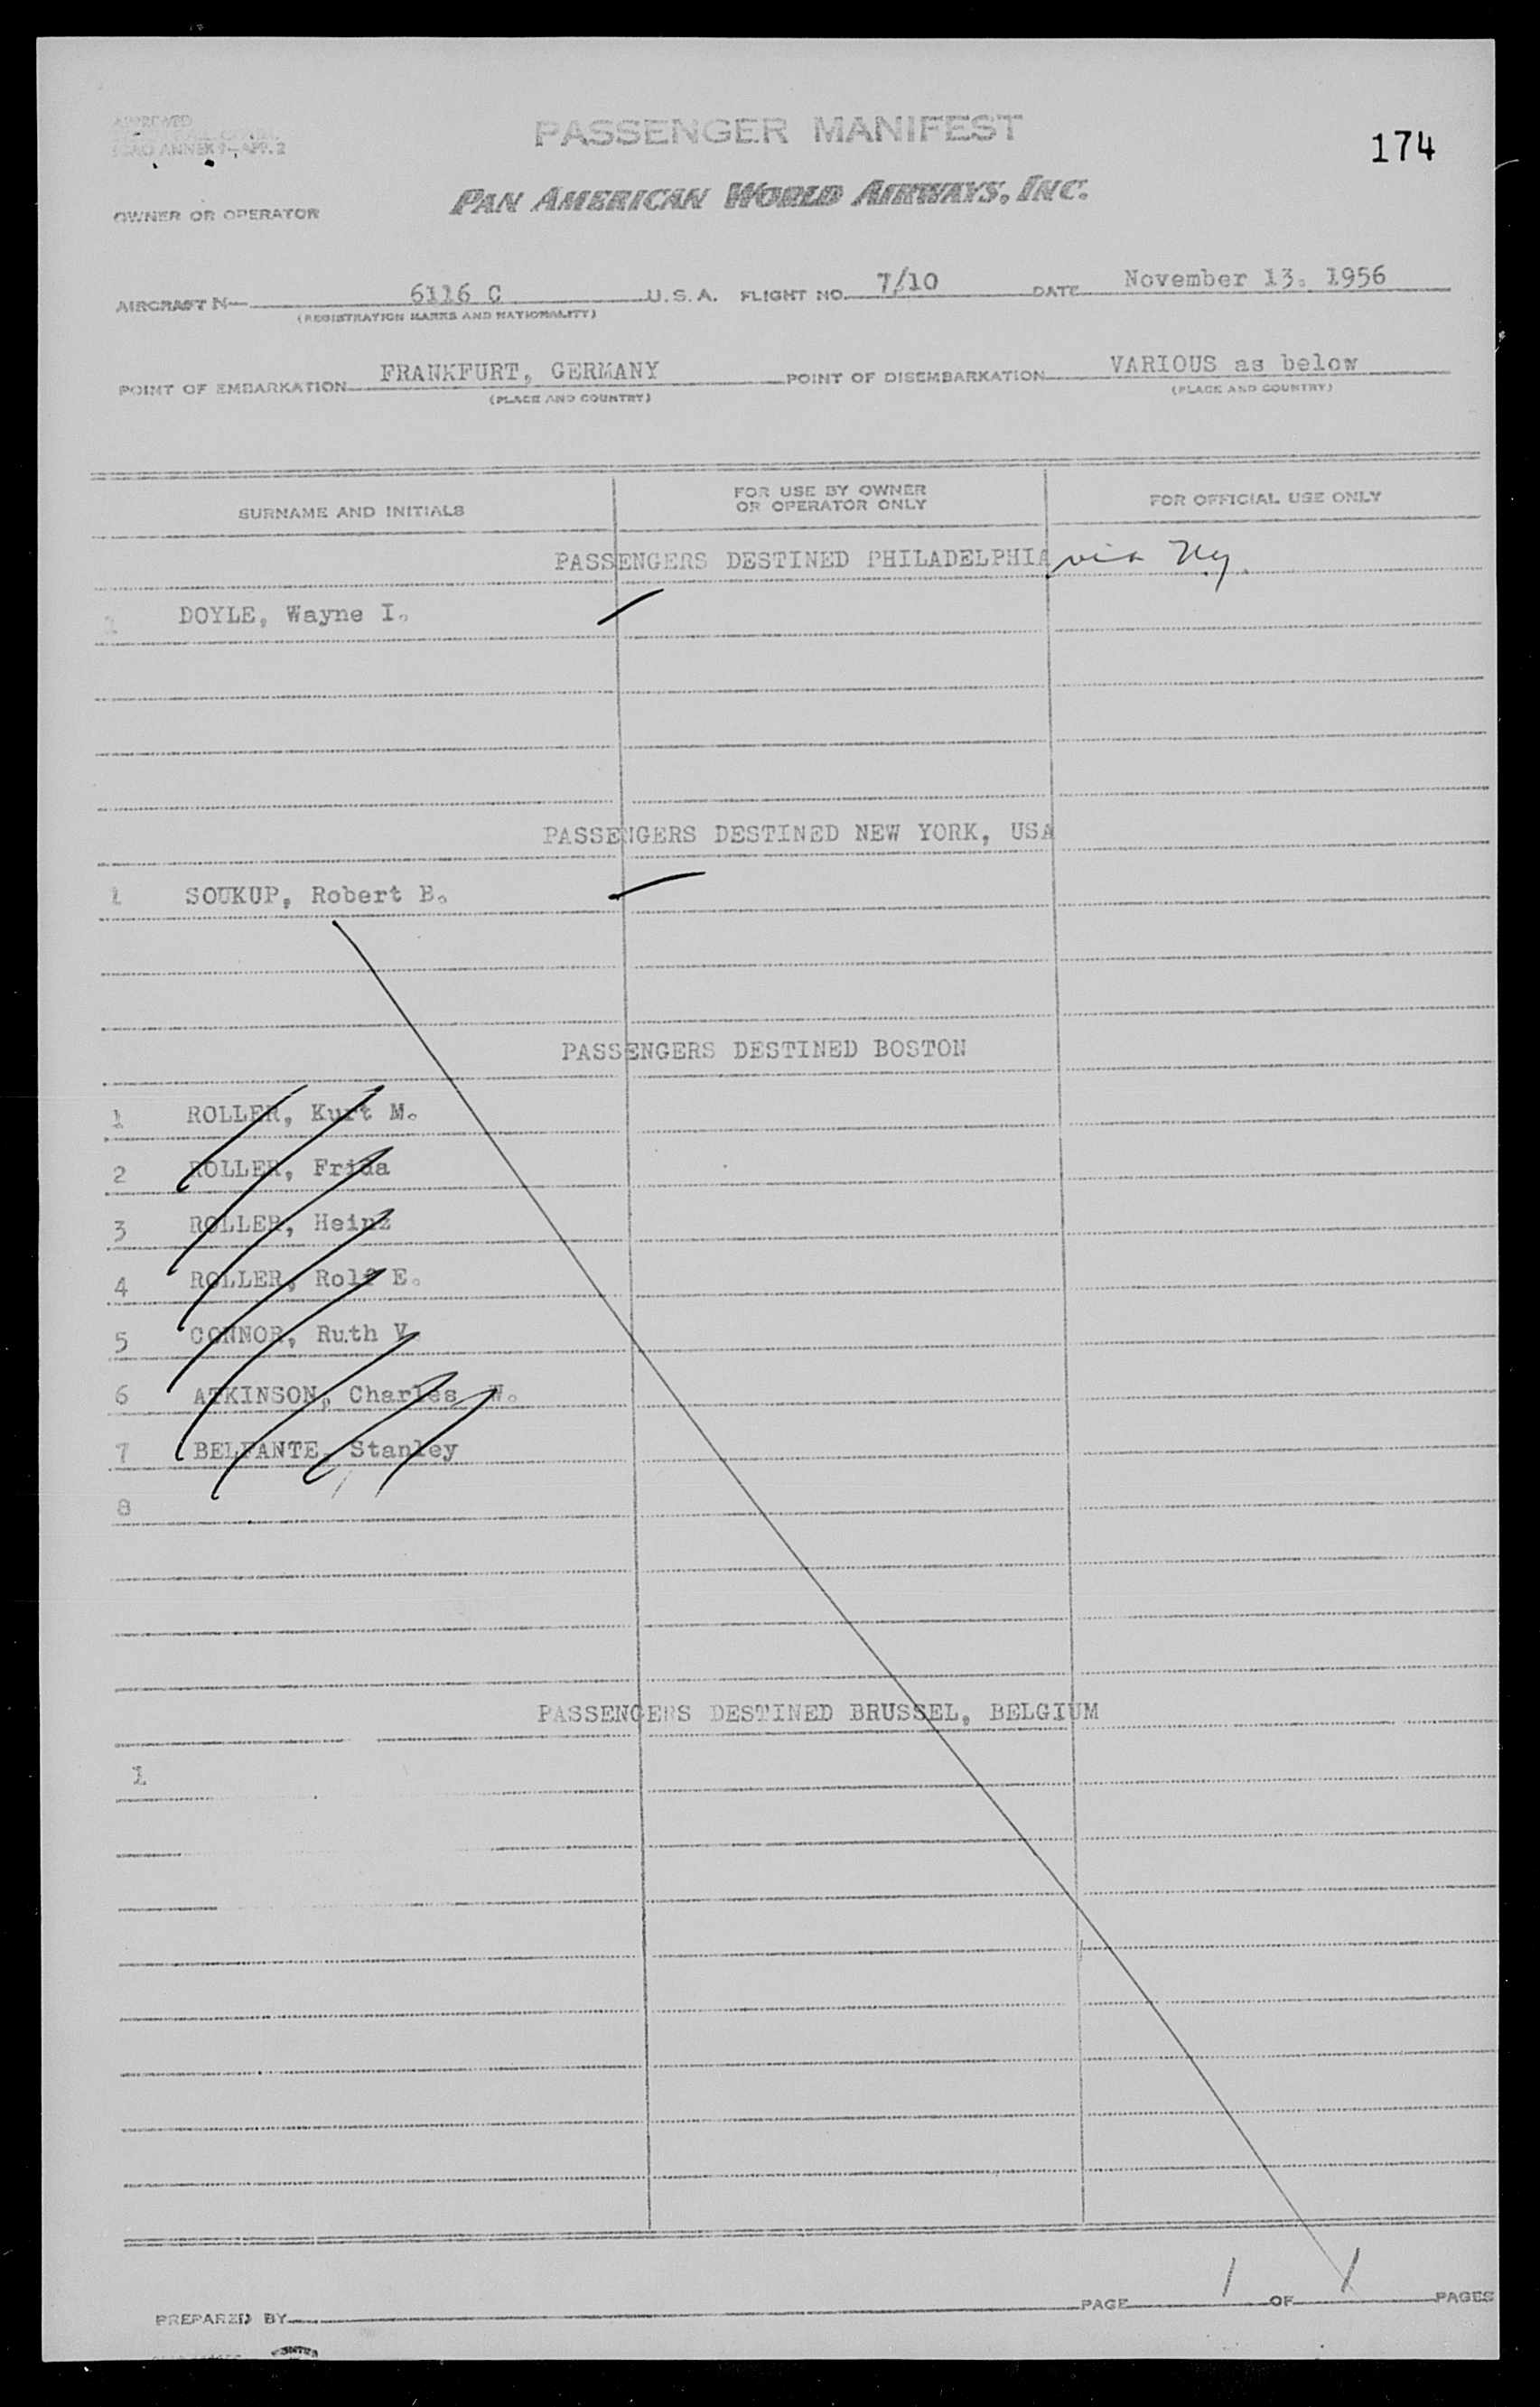 APPROVED
ICAO ANNEX 9-APP. 2
PASSENGER MANIFEST
174
OWNER OR OPERATOR
PAN AMERICAN WORLD AIRWAYS, INC.
AIRCRAFT N 6116 C U.S.A. FLIGHT NO. 7/10 DATE November 13. 1956
(REGISTRATION MARKS AND NATIONALITY)
POINT OF EMBARKATION FRANKFURT, GERMANY POINT OF DISEMBARKATION VARIOUS as below
(PLACE AND COUNTRY) (PLACE AND COUNTRY)
SURNAME AND INITIALS
FOR USE BY OWNER
OR OPERATOR ONLY
FOR OFFICIAL USE ONLY
PASSENGERS DESTINED PHILADELPHIA via Ny.
1 DOYLE, Wayne I.
PASSENGERS DESTINED NEW YORK, USA
1 SOUKUP, Robert B.
PASSENGERS DESTINED BOSTON
1 ROLLER, Kurt M.
2 ROLLER, Frida
3 ROLLER, Heinz
4 ROLLER, Rolf E.
5 CONNOR, Ruth V.
6 ATKINSON, Charles W.
7 BELFANTE, Stanley
8
PASSENGERS DESTINED BRUSSEL, BELGIUM
1
PREPARED BY PAGE 1 OF 1 PAGES